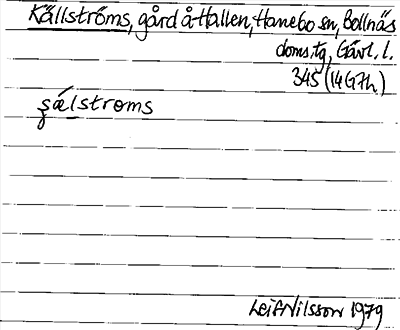 Källströms, gård å Hallen, Hanebo sn, Bollnäs
doms.tg, Gävl. l.
345 (14G7h)
ʂǽlstroms
Leif Nilsson 1979